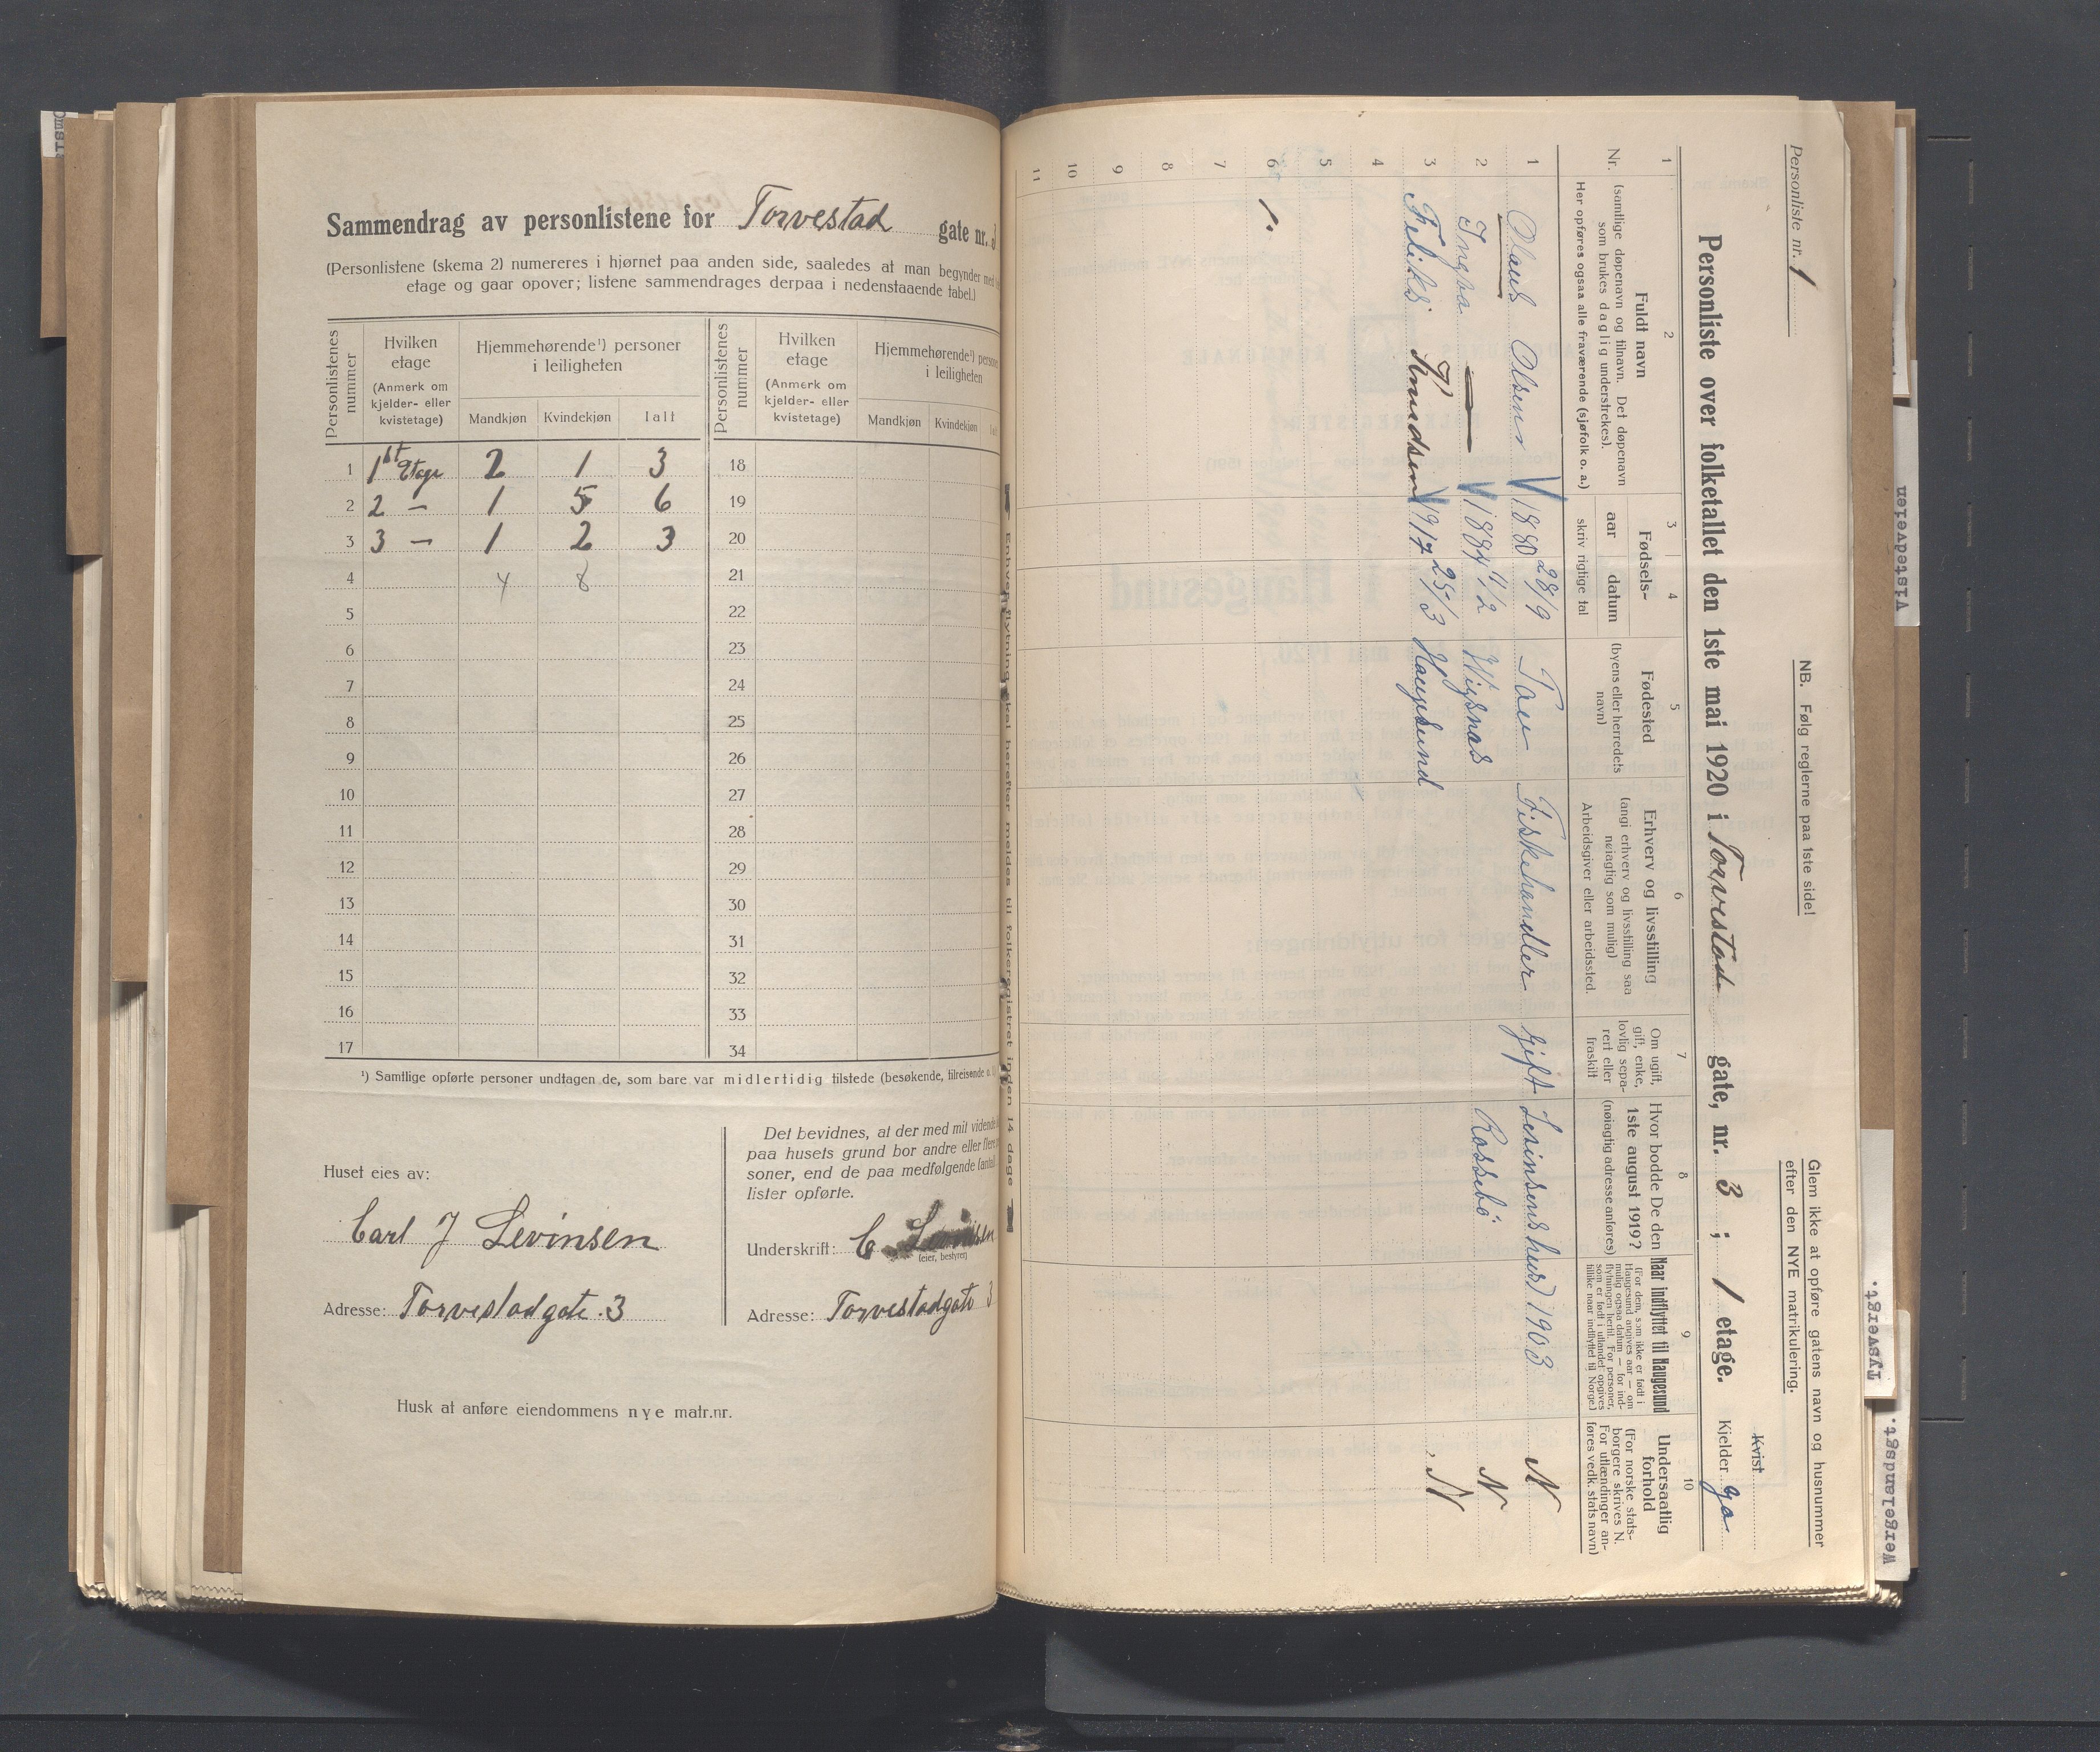 Sammendrag av personlistene for Torvestad gate nr. 3
(Personlistene (skema 2) numereres i hjørnet paa anden side, saaledes at man begynder med
etage og gaar opover; listene sammendrages derpaa i nedenstaaende tabel.)
Personlistenes nummer
Hvilken etage
(Anmerk om kjelder- eller kvistetage)
Hjemmehørende¹) personer i leiligheten
Mandkjøn Kvindekjøn Ialt
Personlistenes nummer
Hvilken etage
(Anmerk om kjelder- eller kvistetage)
Hjemmehørende¹) personer i leiligheten
Mandkjøn Kvindekjøn Ialt
1 1st Etage 2 1 3 18
2 2 — 1 5 6 19
3 3 — 1 2 3 20
4 4 8 21
5 22
6 23
7 24
8 25
9 26
10 27
11 28
12 29
13 30
14 31
15 32
16 33
17 34
¹) Samtlige opførte personer undtagen de, som bare var midlertidig tilstede (besøkende, tilreisende
Huset eies av:
Carl J Levinsen
Adresse: Torvestadgate. 3
Det bevidnes, at der med mit vidende
paa husets grund bor andre eller flere
soner, end de paa medfølgende (antal)
lister opførte.
Underskrift: C Levinsen
(eier, bestyrer)
Adresse: Torvestadgate 3
Husk at anføre eiendommens nye matr.nr.
Personliste nr. 1
NB. Følg reglerne paa 1ste side!
Glem ikke at opføre gatens navn og husnummer
efter den NYE matrikulering.
Personliste over folketallet den 1ste mai 1920 i Torvestad gate, nr. 3; 1 etage.
Kvist
Kjelder ja
1 2 3 4 5 6 7 8 9 10
Nr.
Fuldt navn
(samtlige døpenavn og tilnavn. Det døpenavn
som brukes daglig understrekes).
Her opføres ogsaa alle fraværende (sjøfolk o. a.)
Fødsels-
aar datum
skriv rigtige tal
Fødested
(byens eller herredets
navn)
Erhverv og livsstilling
(angi erhverv og livsstilling saa
nøiagtig som mulig)
Arbeidsgiver eller arbeidssted.
Om ugift,
gift, enke,
lovlig sepa-
rert eller
fraskilt
Hvor bodde De den
1ste august 1919?
(nøiagtig adresse anføres)
Naar indflyttet til Haugesund
(For dem, som ikke er født i
Haugesund angives aar — om
mulig ogsaa datum — for ind-
flytningen hertil. For personer,
som er født i utlandet opgives
tillike naar indflyttet til Norge.)
Undersaatlig
forhold
(For norske stats-
borgere skrives N.
For utlændinger an-
føres vedk. stats navn)
1 Olaus Olsen 1880 28/9 Tau Fiskehandler gift Levinsens hus 1903 N
2 Ingba — 1884 11/2 Wigsnas Rossebö N
3 Feliks Knudsen 1917 25/3 Haugesund N
4
5
6 1.
7
8
9
10
11
Enhver flytning skal herefter meldes til folkeregistret inden 14 dage
Vistedveien
Tysværgt.
Wergelandsgt.